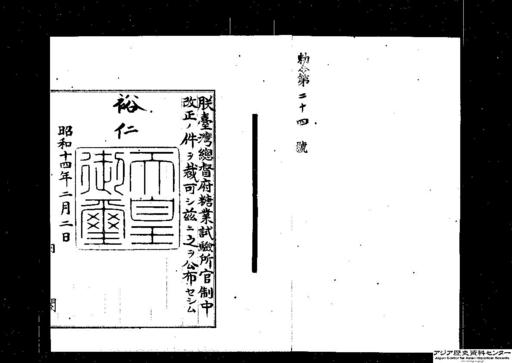 勅令第二十四號
朕臺灣總督府糖業試驗所官制中
改正ノ件ヲ裁可シ茲ニ之ヲ公布セシム
裕仁
天皇御璽
昭和十四年二月二日
アジア歴史資料センター
Japan Center for Asian Historical Records